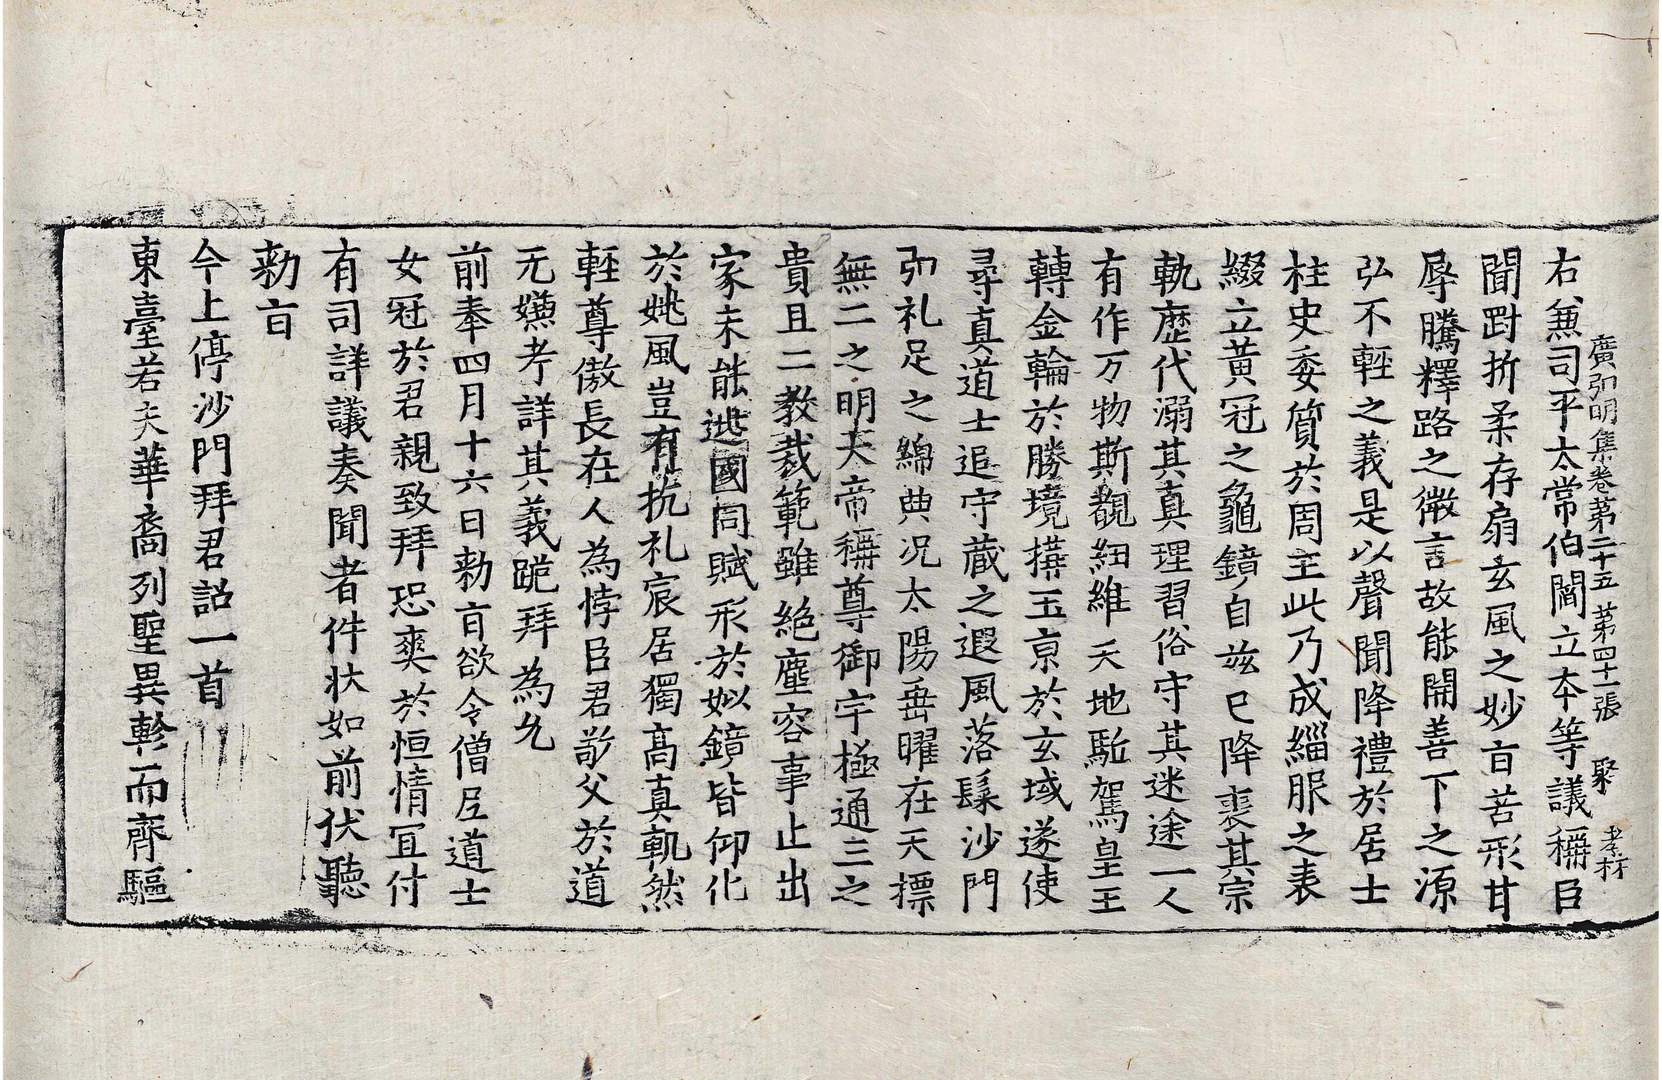 廣弘明集卷第二十五 第四十一張 聚 孝材
右兼司平太常伯閻立本等議稱臣
聞剛折柔存扇玄風之妙旨苦形甘
辱騰釋路之微言故能開善下之源
弘不輕之義是以聲聞降禮於居士
柱史委質於周主此乃成緇服之表
綴立黃冠之龜鏡自兹已降喪其宗
軌歷代溺其真理習俗守其迷途一人
有作万物斯覩紐維天地駈駕皇王
轉金輪於勝境摛玉京於玄域遂使
尋真道士追守藏之遐風落髮沙門
弘礼足之綿典况太陽垂曜在天標
無二之明大帝稱尊御宇極通三之
貴且二教裁範雖絕塵容事止出
家未能逃國同賦形於姒鏡皆仰化
於姚風豈有抗礼宸居獨高真軌然
輕尊傲長在人為悖臣君敬父於道
无嫌考詳其義跪拜為允
前奉四月十六日勑旨欲令僧尼道士
女冠於君親致拜恐爽於恒情宜付
有司詳議奏聞者件狀如前伏聽
勑旨
今上停沙門拜君詔一首
東臺若夫華裔列聖異軫而齊驅